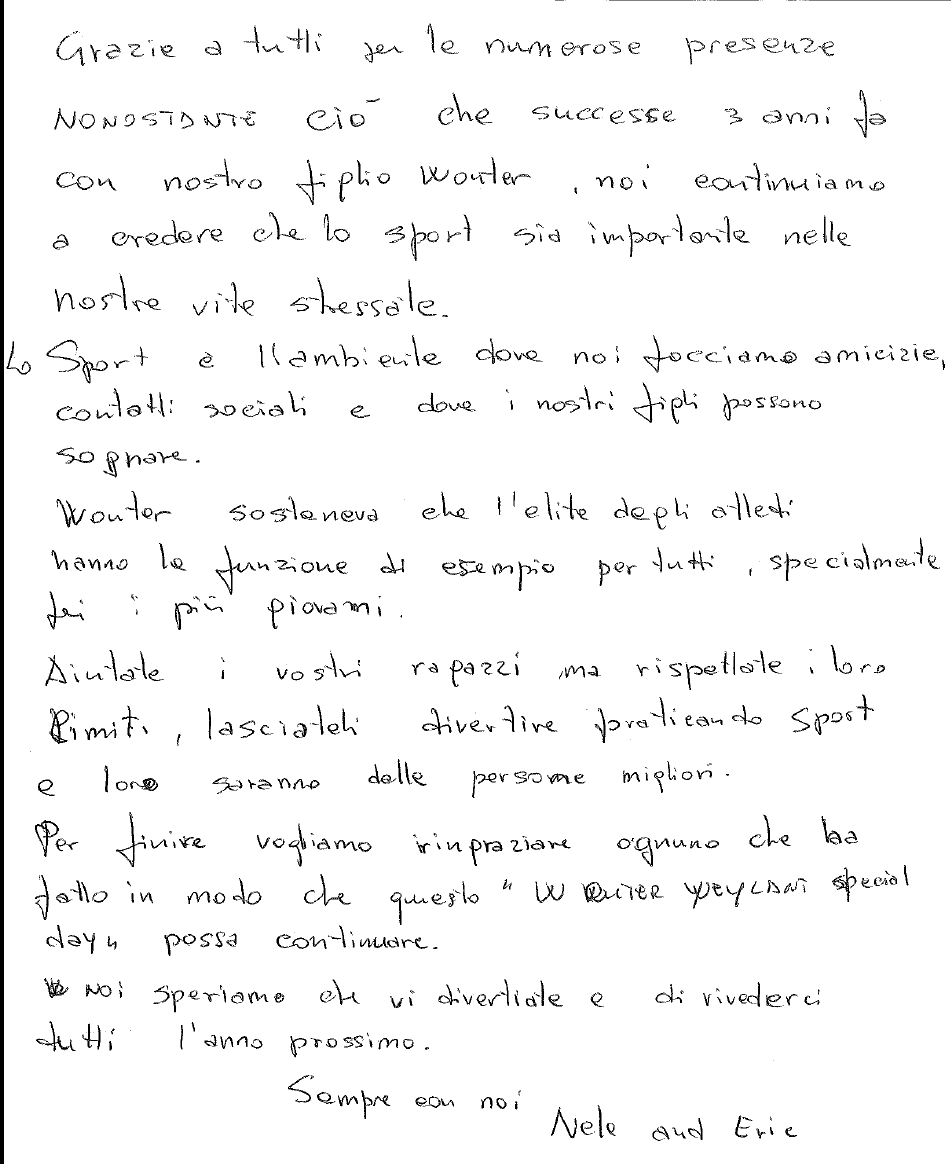 Grazie a tutti per le numerose presenze
NONOSTANTE ciò che successe 3 anni fa
con nostro figlio Wouter, noi continuiamo
a credere che lo sport sia importante nelle
nostre vite stressate.
Lo Sport è l'ambiente dove noi facciamo amicizie,
contatti sociali e dove i nostri figli possono
sognare.
Wouter sosteneva che l'elite degli atleti
hanno la funzione di esempio per tutti, specialmente
fei i più giovani.
Aiutate i vostri ragazzi ma rispettate i loro
limiti, lasciateli divertire praticando Sport
e loro saranno delle persone migliori.
Per finire vogliamo ringraziare ognuno che ha
fatto in modo che questo "WOUTER WEYLANT special
day" possa continuare.
Noi speriamo che vi divertiate e di rivederci
tutti l'anno prossimo.
Sempre con noi
Nele and Eric